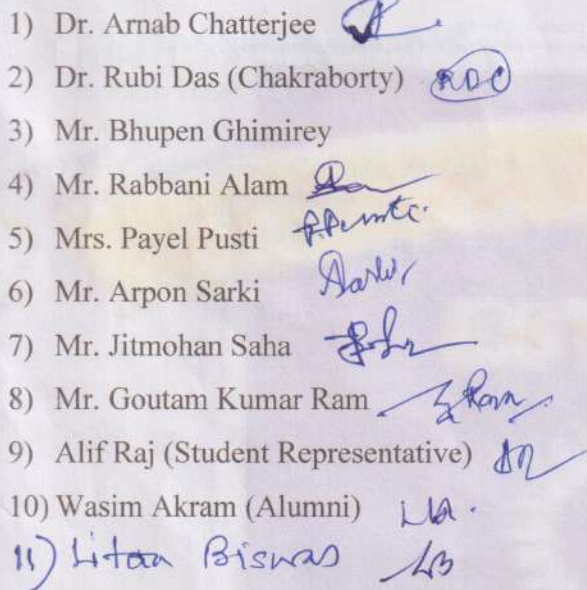 1) Dr. Arnab Chatterjee
2) Dr. Rubi Das (Chakraborty) RDC
3) Mr. Bhupen Ghimirey
4) Mr. Rabbani Alam
5) Mrs. Payel Pusti
6) Mr. Arpon Sarki
7) Mr. Jitmohan Saha
8) Mr. Goutam Kumar Ram Ram
9) Alif Raj (Student Representative)
10) Wasim Akram (Alumni)
11) Litan Biswas LB